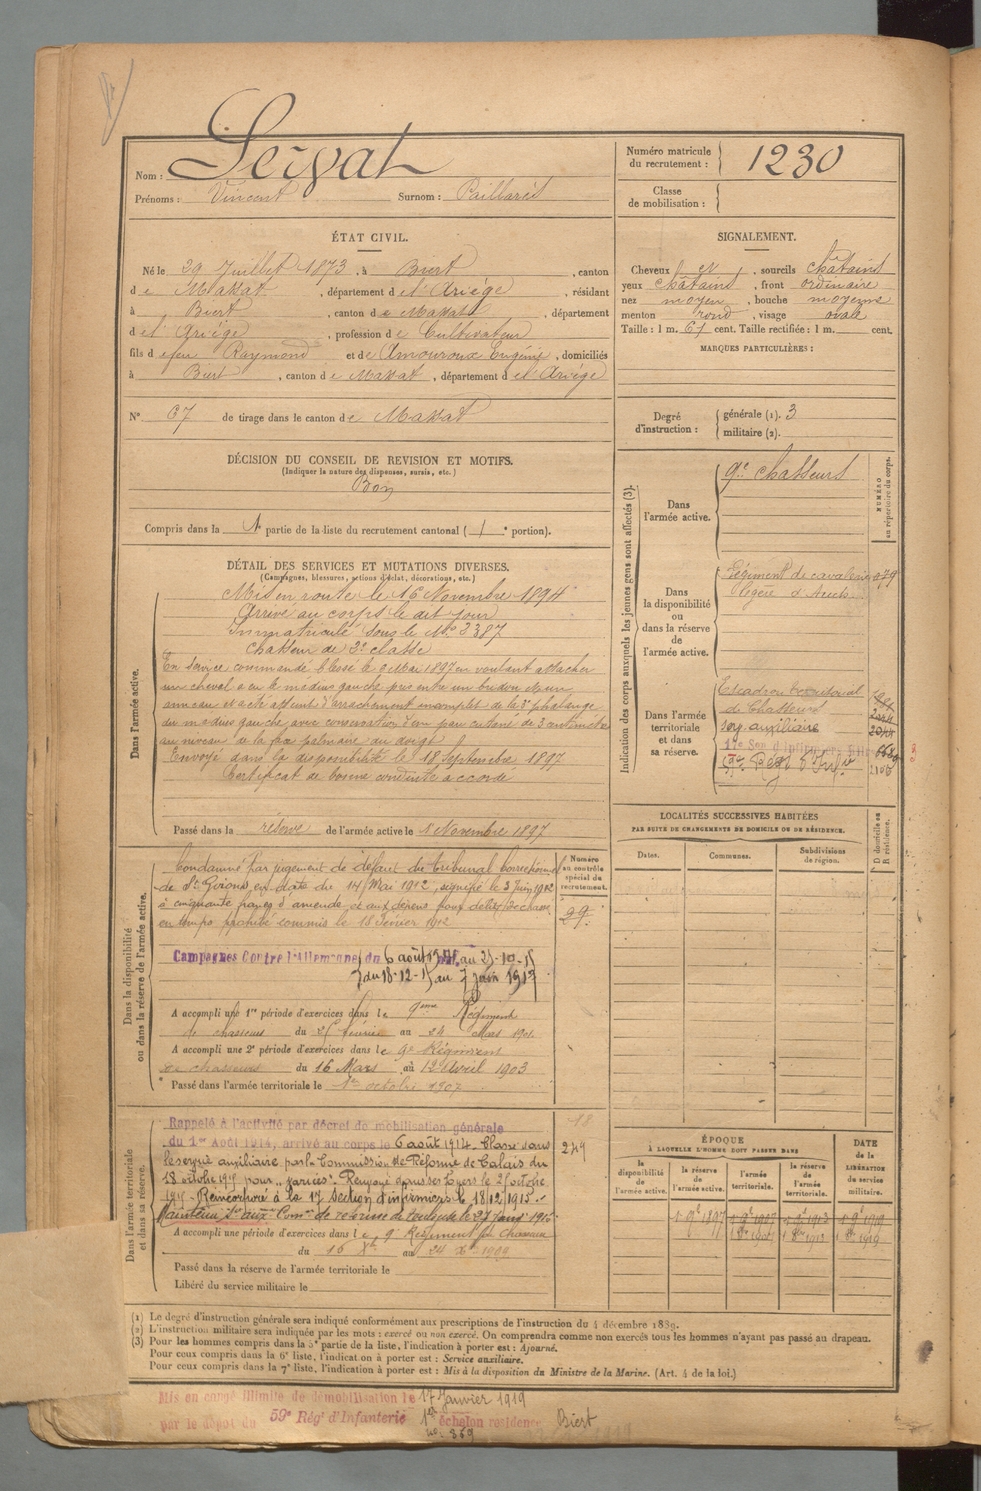 Nom : Servat
Prénoms : Vincent Surnom : Paillarès
Numéro matricule du recrutement : 1230
Classe de mobilisation :
ÉTAT CIVIL.
Né le 29 Juillet 1873, à Biert, canton
de Massat, département de l'Ariège, résidant
à Biert, canton de Massat, département
de l'Ariège, profession de Cultivateur
fils de feu Raymond et de Amouroux Eugénie, domiciliés
à Biert, canton de Massat, département de l'Ariège
N° 67 de tirage dans le canton de Massat
SIGNALEMENT.
Cheveux et sourcils châtains
yeux châtains, front ordinaire
nez moyen, bouche moyenne
menton rond, visage ovale
Taille : 1 m. 67 cent. Taille rectifiée : 1 m. cent.
MARQUES PARTICULIÈRES :
Degré d'instruction : générale (1). 3
militaire (2).
DÉCISION DU CONSEIL DE REVISION ET MOTIFS.
(Indiquer la nature des dispenses, sursis, etc.)
Bon
Compris dans la 1e partie de la liste du recrutement cantonal ( 1 e portion).
DÉTAIL DES SERVICES ET MUTATIONS DIVERSES.
(Campagnes, blessures, actions d'éclat, décorations, etc.)
Dans l'armée active.
Mis en route le 16 Novembre 1894
Arrivé au corps le dit jour
Immatriculé sous le No 3387
Chasseur de 2e classe
En service commandé blessé le 2 Mai 1897 en voulant attacher
un cheval a eu le médius gauche pris entre un bridon et un
anneau et a été atteint d'arrachement incomplet de la 3e phalange
du médius gauche avec conservation d'un peu cutané de 3 centimètres
au niveau de la face palmaire du doigt
Envoyé dans la disponibilité le 18 Septembre 1897
Certificat de bonne conduite accordé
Passé dans la réserve de l'armée active le 1 Novembre 1897
Indication des corps auxquels les jeunes gens sont affectés (3).
NUMÉRO au répertoire du corps.
Dans l'armée active. 9e chasseurs
Dans la disponibilité ou dans la réserve de l'armée active.
Régiment de cavalerie 279
légère d'Auch
Dans l'armée territoriale et dans sa réserve.
Escadron territorial
de Chasseurs
serv. auxiliaire
17e Son d'Infirmiers
Régt d'Infie 2106
LOCALITÉS SUCCESSIVES HABITÉES
PAR SUITE DE CHANGEMENTS DE DOMICILE OU DE RÉSIDENCE.
Dates. Communes. Subdivisions de région. D domicile ou R résidence.
Dans la disponibilité ou dans la réserve de l'armée active.
Numéro au contrôle spécial du recrutement.
29.
Condamné par jugement de défaut du tribunal correctionnel
de St Girons, en date du 14 Mai 1912, signifié le 3 Juin 1912
à cinquante francs d'amende et aux dépens pour délit de chasse
en temps prohibé commis le 18 Février 1912
Campagnes Contre l'Allemagne du 6 août 1914 au 25-10-15
du 18-12-15 au 7 juin 1917
A accompli une 1re période d'exercices dans le 9ème Régiment
de chasseurs du 25 février au 24 Mars 1901
A accompli une 2e période d'exercices dans le 9e Régiment
de chasseurs du 16 Mars au 12 Avril 1903
Passé dans l'armée territoriale le 1er octobre 1907
Dans l'armée territoriale et dans sa réserve.
Rappelé à l'activité par décret de mobilisation générale
du 1er Août 1914, arrivé au corps le 6 août 1914. Classé dans
le service auxiliaire par la Commission de Réforme de Calais du
18 octobre 1915 pour "varices". Renvoyé dans ses foyers le 25 octobre
1915. Réincorporé à la 17 Section d'infirmiers le 18/12/1915.
Maintenu Sce auxre Comon de réforme de Toulouse le 27
A accompli une période d'exercices dans le 9e Régiment de Chasseurs
du 16 Xbre au 24 Xbre 1909
Passé dans la réserve de l'armée territoriale le
Libéré du service militaire le
ÉPOQUE
À LAQUELLE L'HOMME DOIT PASSER DANS
la disponibilité de l'armée active. la réserve de l'armée active. l'armée territoriale. la réserve de l'armée territoriale.
DATE de la LIBÉRATION du service militaire.
(1) Le degré d'instruction générale sera indiqué conformément aux prescriptions de l'instruction du 4 décembre 1889.
(2) L'instruction militaire sera indiquée par les mots : exercé ou non exercé. On comprendra comme non exercés tous les hommes n'ayant pas passé au drapeau.
(3) Pour les hommes compris dans la 5e partie de la liste, l'indication à porter est : Ajourné.
Pour ceux compris dans la 6e liste, l'indication à porter est : Service auxiliaire.
Pour ceux compris dans la 7e liste, l'indication à porter est : Mis à la disposition du Ministre de la Marine. (Art. 4 de la loi.)
Mis en congé illimité de démobilisation le 17 Janvier 1919
par le dépôt du 59e Régt d'Infanterie 1er échelon résidence Biert
No 869